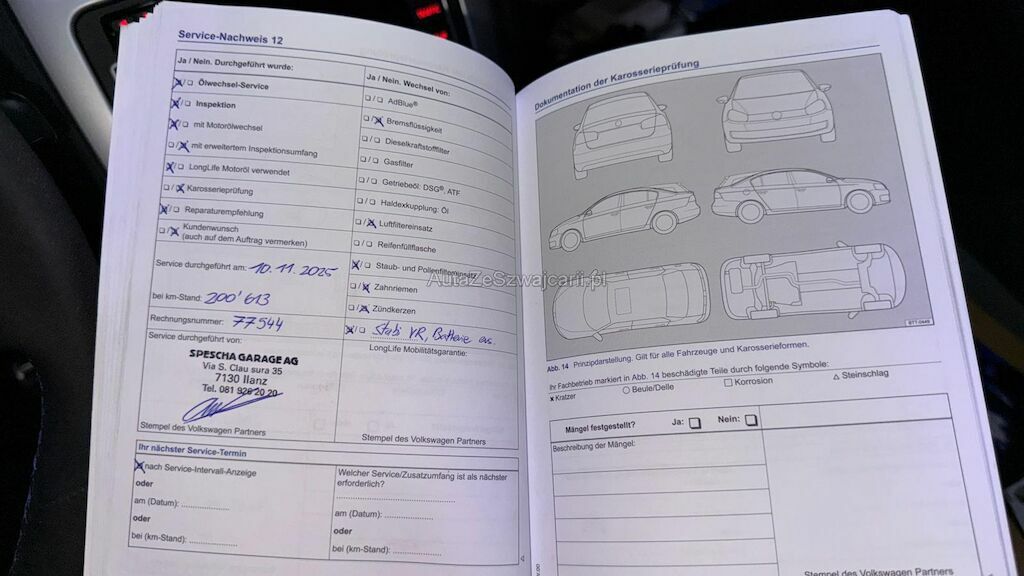 Service-Nachweis 12
Ja / Nein. Durchgeführt wurde:
Ölwechsel-Service
Inspektion
mit Motorölwechsel
mit erweitertem Inspektionsumfang
LongLife Motoröl verwendet
Karosserieprüfung
Reparaturempfehlung
Kundenwunsch
(auch auf dem Auftrag vermerken)
Service durchgeführt am: 10.11.2025
bei km-Stand: 200'613
Rechnungsnummer: 77544
Service durchgeführt von:
SPESCHA GARAGE AG
Via S. Clau sura 35
7130 Ilanz
Tel. 081 926 20 20
Stempel des Volkswagen Partners
Ja / Nein. Wechsel von:
AdBlue®
Bremsflüssigkeit
Dieselkraftstofffilter
Gasfilter
Getriebeöl: DSG®, ATF
Haldexkupplung: Öl
Luftfiltereinsatz
Reifenfüllflasche
Staub- und Pollenfiltereinsatz
Zahnriemen
Zündkerzen
Stabi VR, Batterie
LongLife Mobilitätsgarantie:
Stempel des Volkswagen Partners
Ihr nächster Service-Termin
nach Service-Intervall-Anzeige
oder
am (Datum): ....................
oder
bei (km-Stand): ....................
Welcher Service/Zusatzumfang ist als nächster
erforderlich?
am (Datum): ....................
oder
bei (km-Stand): ....................
Dokumentation der Karosserieprüfung
AutaZeSzwajcarii.pl
BTT-0449
Abb. 14 Prinzipdarstellung. Gilt für alle Fahrzeuge und Karosserieformen.
Ihr Fachbetrieb markiert in Abb. 14 beschädigte Teile durch folgende Symbole:
x Kratzer ○ Beule/Delle □ Korrosion △ Steinschlag
Mängel festgestellt? Ja: Nein:
Beschreibung der Mängel:
Stempel des Volkswagen Partners